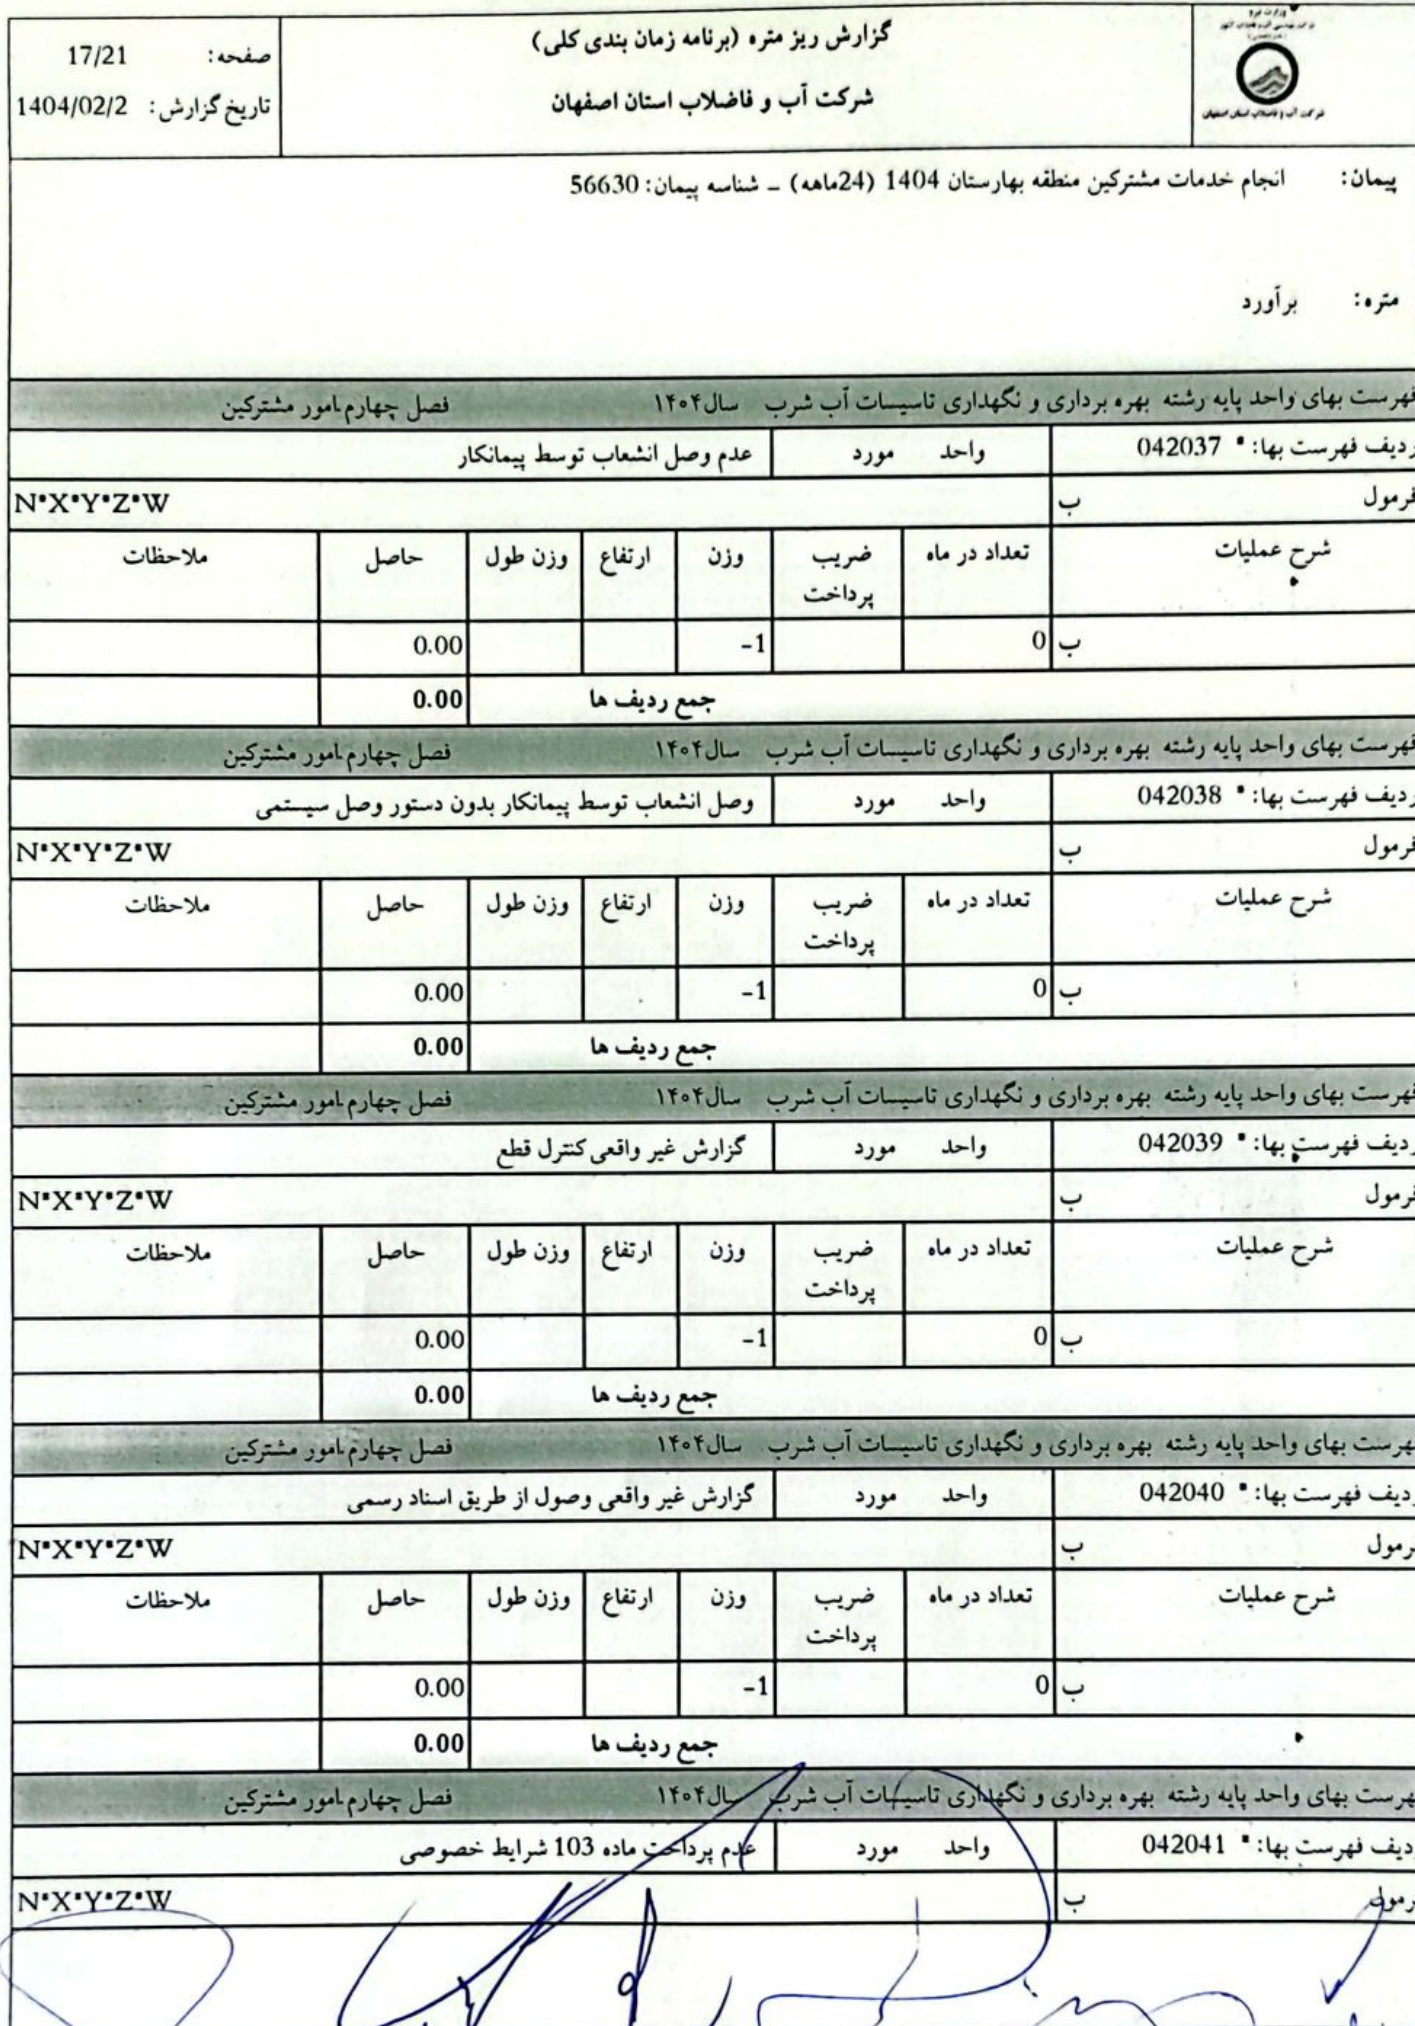 گزارش ریز متره (برنامه زمان بندی کلی)
شرکت آب و فاضلاب استان اصفهان
صفحه: 17/21
تاریخ گزارش: 1404/02/2
وزارت نیرو
شرکت آب و فاضلاب استان اصفهان
پیمان: انجام خدمات مشترکین منطقه بهارستان 1404 (24ماهه) - شناسه پیمان: 56630
متره: برآورد
فهرست بهای واحد پایه رشته بهره برداری و نگهداری تاسیسات آب شرب سال۱۴۰۴ فصل چهارم.امور مشترکین
ردیف فهرست بها: * 042037 واحد مورد عدم وصل انشعاب توسط پیمانکار
فرمول ب N*X*Y*Z*W
شرح عملیات تعداد در ماه ضریب پرداخت وزن ارتفاع وزن طول حاصل ملاحظات
ب 0 -1 0.00
جمع ردیف ها 0.00
فهرست بهای واحد پایه رشته بهره برداری و نگهداری تاسیسات آب شرب سال۱۴۰۴ فصل چهارم.امور مشترکین
ردیف فهرست بها: * 042038 واحد مورد وصل انشعاب توسط پیمانکار بدون دستور وصل سیستمی
فرمول ب N*X*Y*Z*W
شرح عملیات تعداد در ماه ضریب پرداخت وزن ارتفاع وزن طول حاصل ملاحظات
ب 0 -1 0.00
جمع ردیف ها 0.00
فهرست بهای واحد پایه رشته بهره برداری و نگهداری تاسیسات آب شرب سال۱۴۰۴ فصل چهارم.امور مشترکین
ردیف فهرست بها: * 042039 واحد مورد گزارش غیر واقعی کنترل قطع
فرمول ب N*X*Y*Z*W
شرح عملیات تعداد در ماه ضریب پرداخت وزن ارتفاع وزن طول حاصل ملاحظات
ب 0 -1 0.00
جمع ردیف ها 0.00
هرست بهای واحد پایه رشته بهره برداری و نگهداری تاسیسات آب شرب سال۱۴۰۴ فصل چهارم.امور مشترکین
ردیف فهرست بها: * 042040 واحد مورد گزارش غیر واقعی وصول از طریق اسناد رسمی
رمول ب N*X*Y*Z*W
شرح عملیات تعداد در ماه ضریب پرداخت وزن ارتفاع وزن طول حاصل ملاحظات
ب 0 -1 0.00
جمع ردیف ها 0.00
هرست بهای واحد پایه رشته بهره برداری و نگهداری تاسیسات آب شرب سال۱۴۰۴ فصل چهارم.امور مشترکین
ردیف فهرست بها: * 042041 واحد مورد عدم پرداخت ماده 103 شرایط خصوصی
رمول ب N*X*Y*Z*W